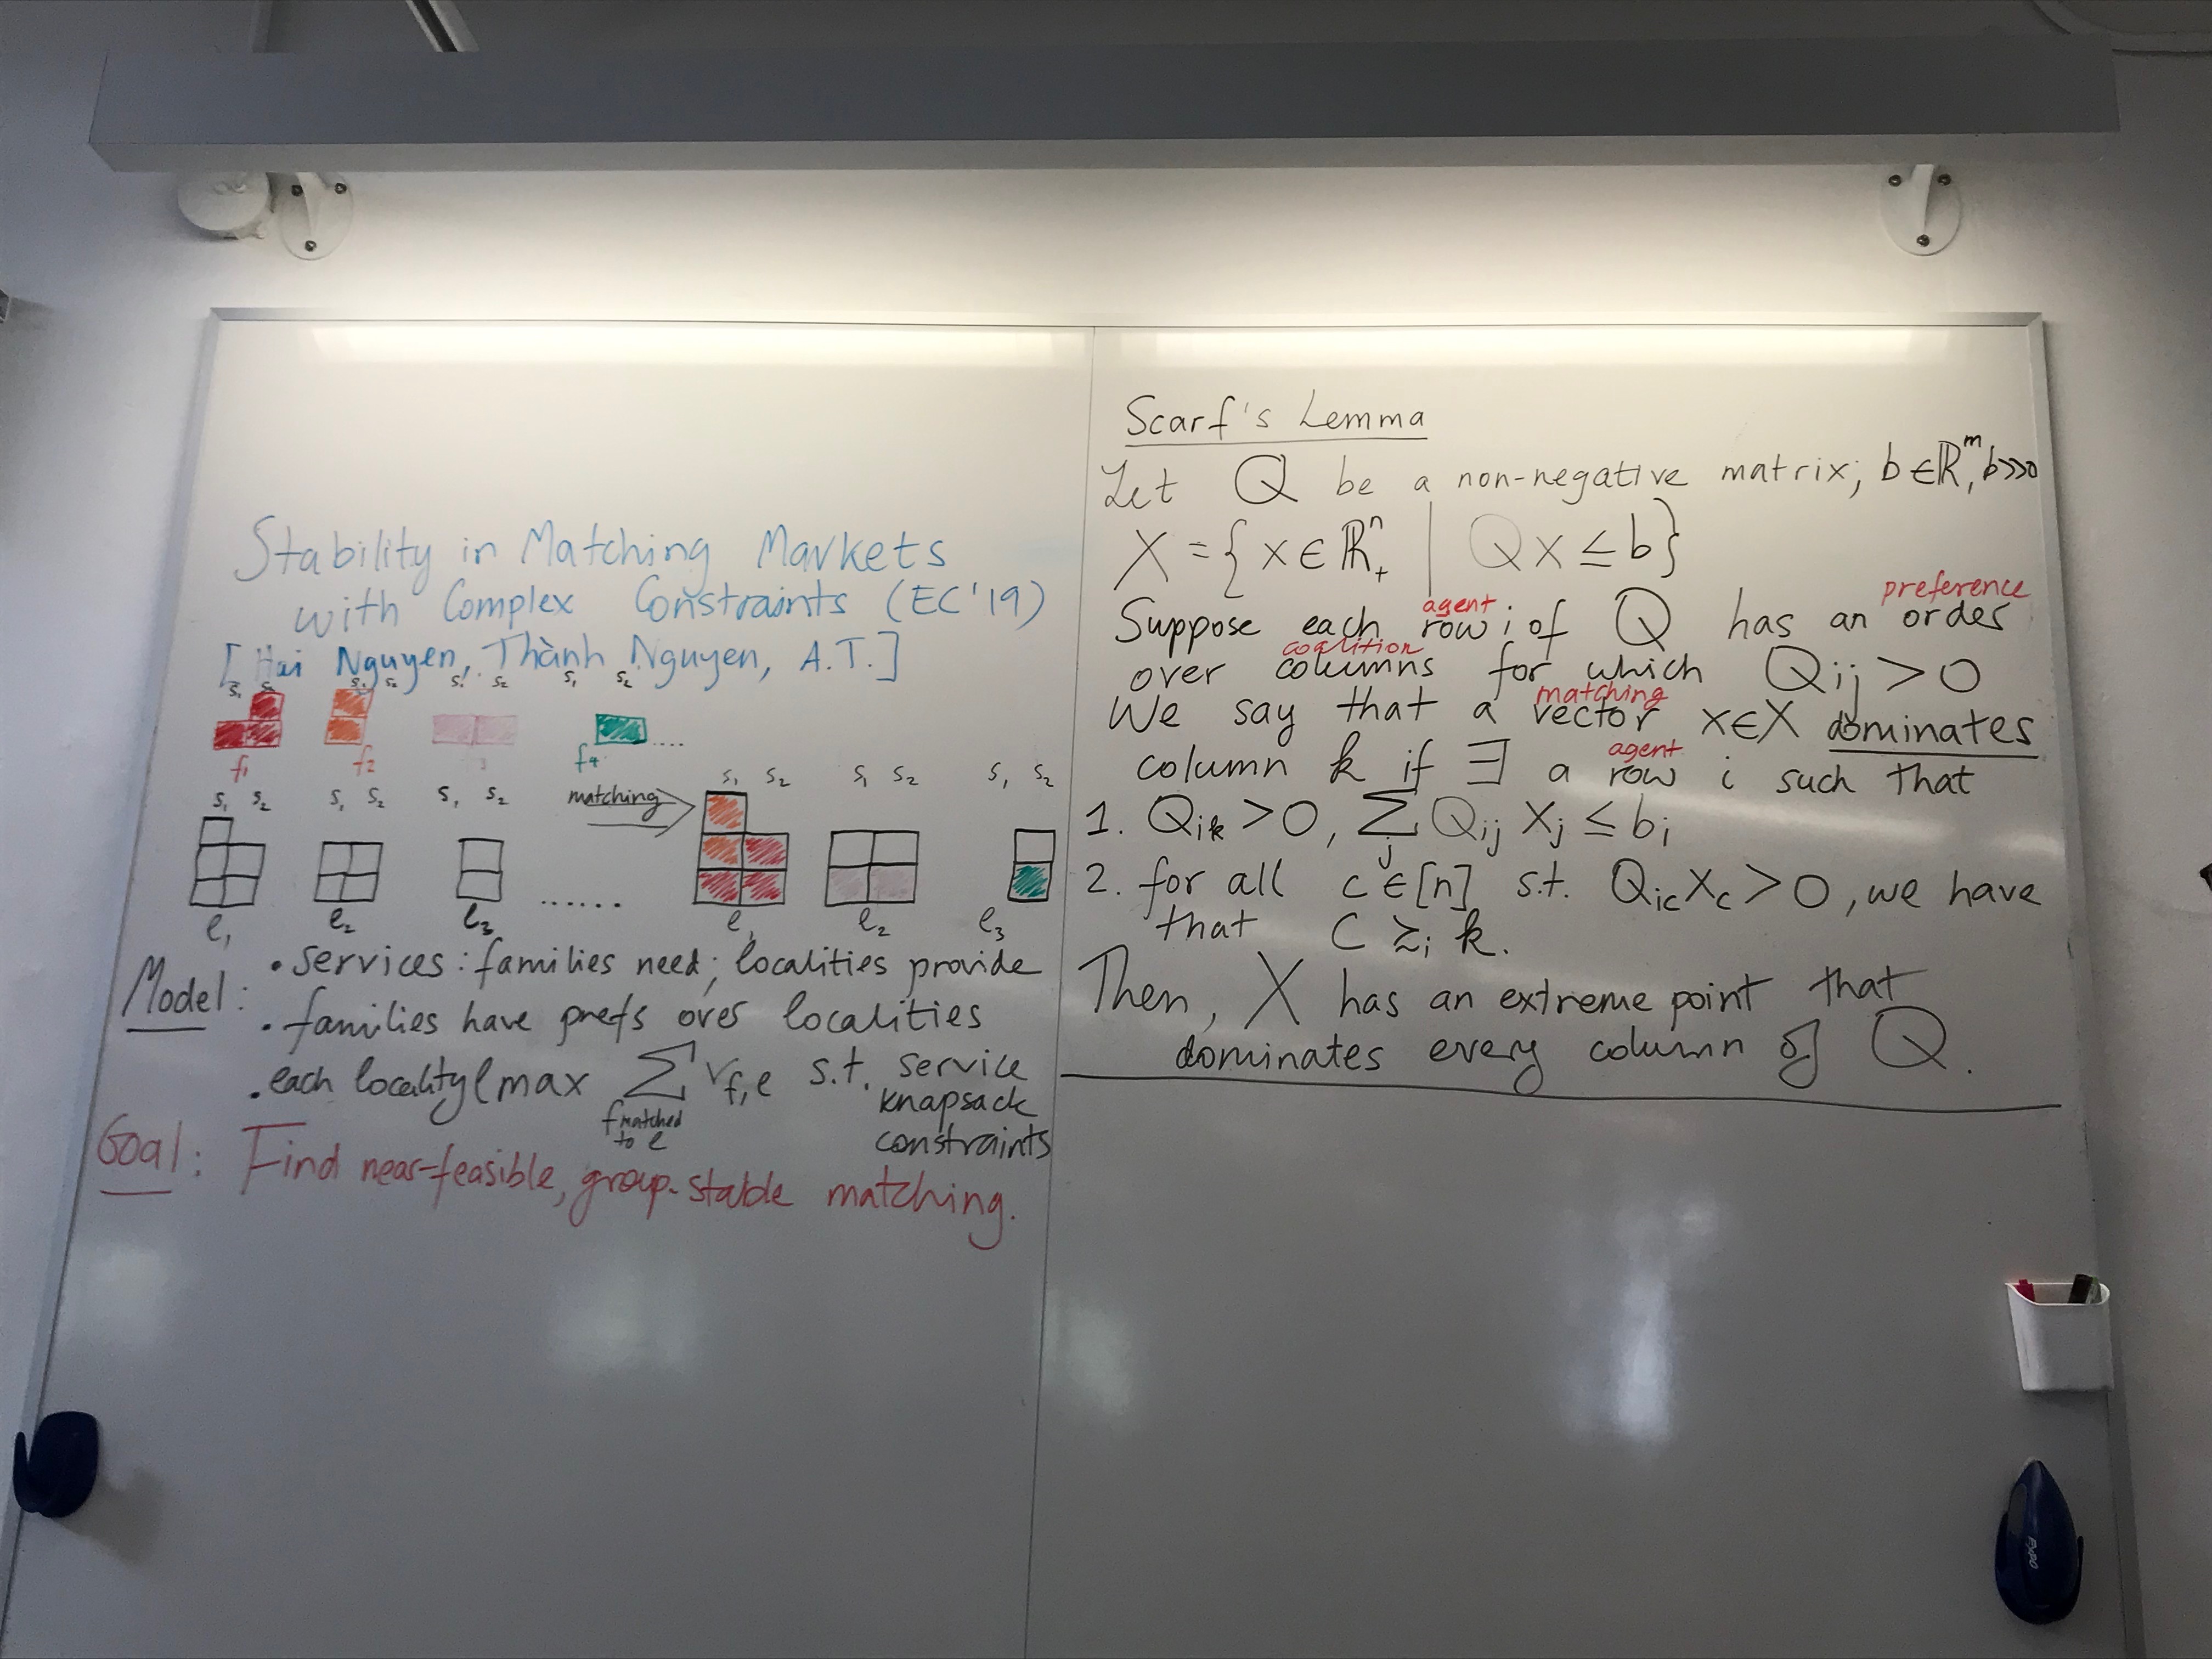 Stability in Matching Markets
with Complex Constraints (EC'19)
[Hai Nguyen, Thành Nguyen, A.T.]
s₁ s₂ s₁ s₂ s₁ s₂ s₁ s₂
f₁ f₂ f₃ f₄ ....
s₁ s₂ s₁ s₂ s₁ s₂ matching s₁ s₂ s₁ s₂ s₁ s₂
l₁ l₂ l₃ ...... l₁ l₂ l₃
Model: • services: families need; localities provide
• families have prefs over localities
• each locality l max ∑ v_{f,l} s.t. service
f matched to l
knapsack
constraints
Goal: Find near-feasible, group-stable matching.
Scarf's Lemma
Let Q be a non-negative matrix; b ∈ ℝᵐ, b>>0
X = {x ∈ ℝⁿ₊ | Qx ≤ b}
agent preference
Suppose each row i of Q has an order
coalition
over columns for which Qij > 0
matching
We say that a vector x∈X dominates
agent
column k if ∃ a row i such that
1. Qik > 0, ∑j Qij xj ≤ bi
2. for all c ∈ [n] s.t. Qic xc > 0, we have
that c ≿i k.
Then, X has an extreme point that
dominates every column of Q.
EXPO